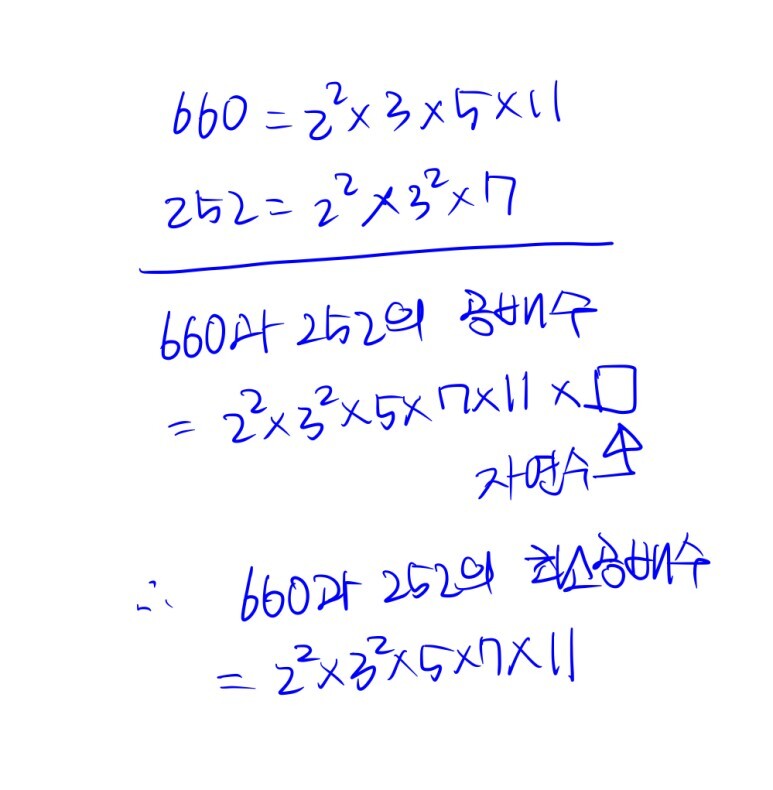 660 = 2² × 3 × 5 × 11
252 = 2² × 3² × 7
660과 252의 공배수
= 2² × 3² × 5 × 7 × 11 × □
자연수
∴ 660과 252의 최소공배수
= 2² × 3² × 5 × 7 × 11